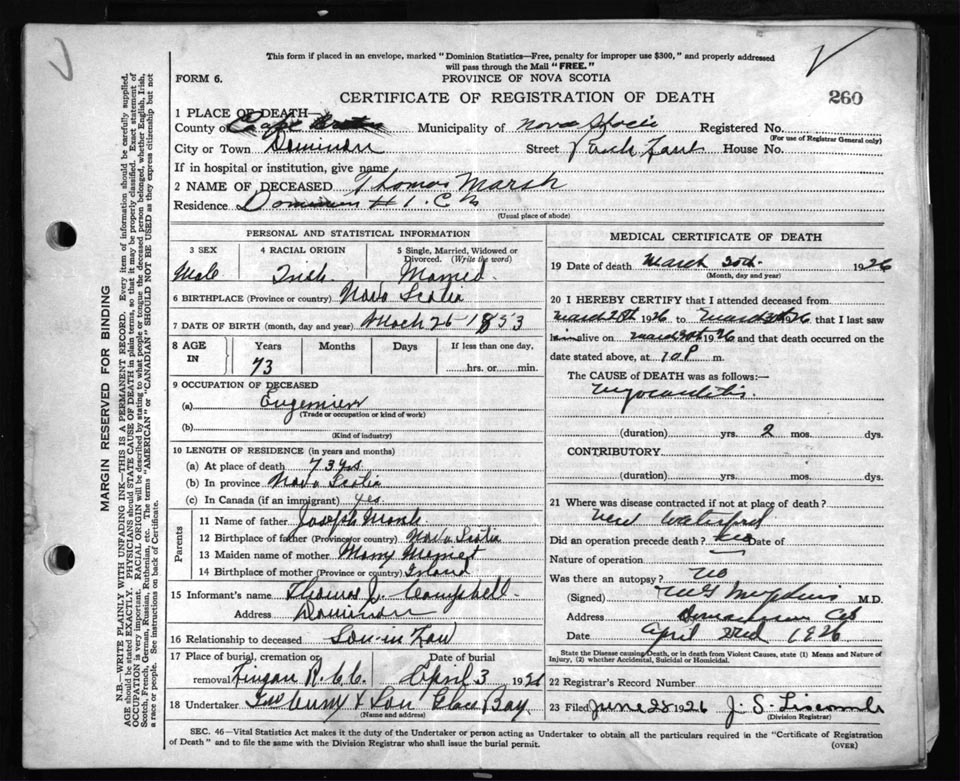 This form if placed in an envelope, marked "Dominion Statistics—Free, penalty for improper use $300," and properly addressed
will pass through the Mail "FREE."
FORM 6.
PROVINCE OF NOVA SCOTIA
CERTIFICATE OF REGISTRATION OF DEATH
260
1 PLACE OF DEATH—
County of Cape Breton Municipality of Nova Scotia Registered No.
(For use of Registrar General only)
City or Town Dominion Street House No.
If in hospital or institution, give name
2 NAME OF DECEASED Thomas Marsh
Residence Dominion # 1. C B
(Usual place of abode)
PERSONAL AND STATISTICAL INFORMATION
3 SEX 4 RACIAL ORIGIN 5 Single, Married, Widowed or Divorced. (Write the word)
Male Irish Married.
6 BIRTHPLACE (Province or country) Nova Scotia
7 DATE OF BIRTH (month, day and year) March 25 1853
8 AGE IN Years Months Days If less than one day,
73 hrs. or min.
9 OCCUPATION OF DECEASED
(a)
(Trade or occupation or kind of work)
(b)
(Kind of industry)
10 LENGTH OF RESIDENCE (in years and months)
(a) At place of death 73 yrs
(b) In province Nova Scotia
(c) In Canada (if an immigrant) yes.
Parents
11 Name of father Joseph Marsh
12 Birthplace of father (Province or country) Nova Scotia
13 Maiden name of mother Mary
14 Birthplace of mother (Province or country)
15 Informant's name Thomas J. Campbell.
Address Dominion
16 Relationship to deceased Son-in Law
17 Place of burial, cremation or removal Lingan R. C. C. Date of burial April 3 1926
18 Undertaker & Son Glace Bay
(Name and address)
MEDICAL CERTIFICATE OF DEATH
19 Date of death March 1926
(Month, day and year)
20 I HEREBY CERTIFY that I attended deceased from
March 1926 to March 1926 that I last saw
him alive on March 1926 and that death occurred on the
date stated above, at 10 P m.
The CAUSE of DEATH was as follows:—
Myocarditis.
(duration) yrs. 2 mos. dys.
CONTRIBUTORY
(duration) yrs. mos. dys.
21 Where was disease contracted if not at place of death?
New Waterford
Did an operation precede death? No Date of
Nature of operation
Was there an autopsy? No
(Signed) M.D.
Address Dominion CB
Date April 2nd 1926
State the Disease causing Death, or in death from Violent Causes, state (1) Means and Nature of
Injury, (2) whether Accidental, Suicidal or Homicidal.
22 Registrar's Record Number
23 Filed June 28 1926 J. S. Liscomb
(Division Registrar)
SEC. 46—Vital Statistics Act makes it the duty of the Undertaker or person acting as Undertaker to obtain all the particulars required in the "Certificate of Registration
of Death" and to file the same with the Division Registrar who shall issue the burial permit.
(OVER)
MARGIN RESERVED FOR BINDING
N.B.—WRITE PLAINLY WITH UNFADING INK—THIS IS A PERMANENT RECORD. Every item of information should be carefully supplied.
AGE should be stated EXACTLY. PHYSICIANS should STATE CAUSE OF DEATH in plain terms, so that it may be properly classified. Exact statement of
OCCUPATION is very important. RACIAL ORIGIN will be described by stating to what people or tongue the deceased person belonged, whether English, Irish,
Scotch, French, German, Russian, Ruthenian, etc. The terms "AMERICAN" or "CANADIAN" SHOULD NOT BE USED as they express citizenship but not
a race or people. See instructions on back of Certificate.